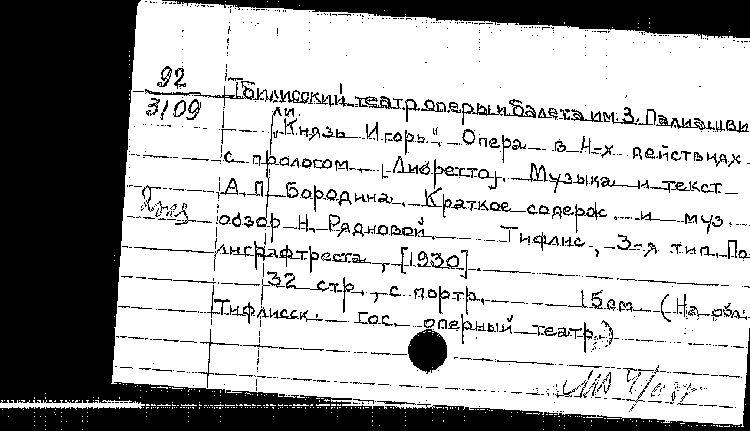 92
3109
Тбилисский театр оперы и балета им. З. Палиашви
ли.
"Князь Игорь". Опера в 4-х действиях
с прологом. [Либретто]. Музыка и текст
А. П. Бородина. Краткое содерж. и муз.
2 экз
обзор Н. Рядновой. Тифлис, 3-я тип. По
лиграфтреста, [1930].
32 стр., с портр. 15см (На обл:
Тифлисск. гос. оперный театр.)